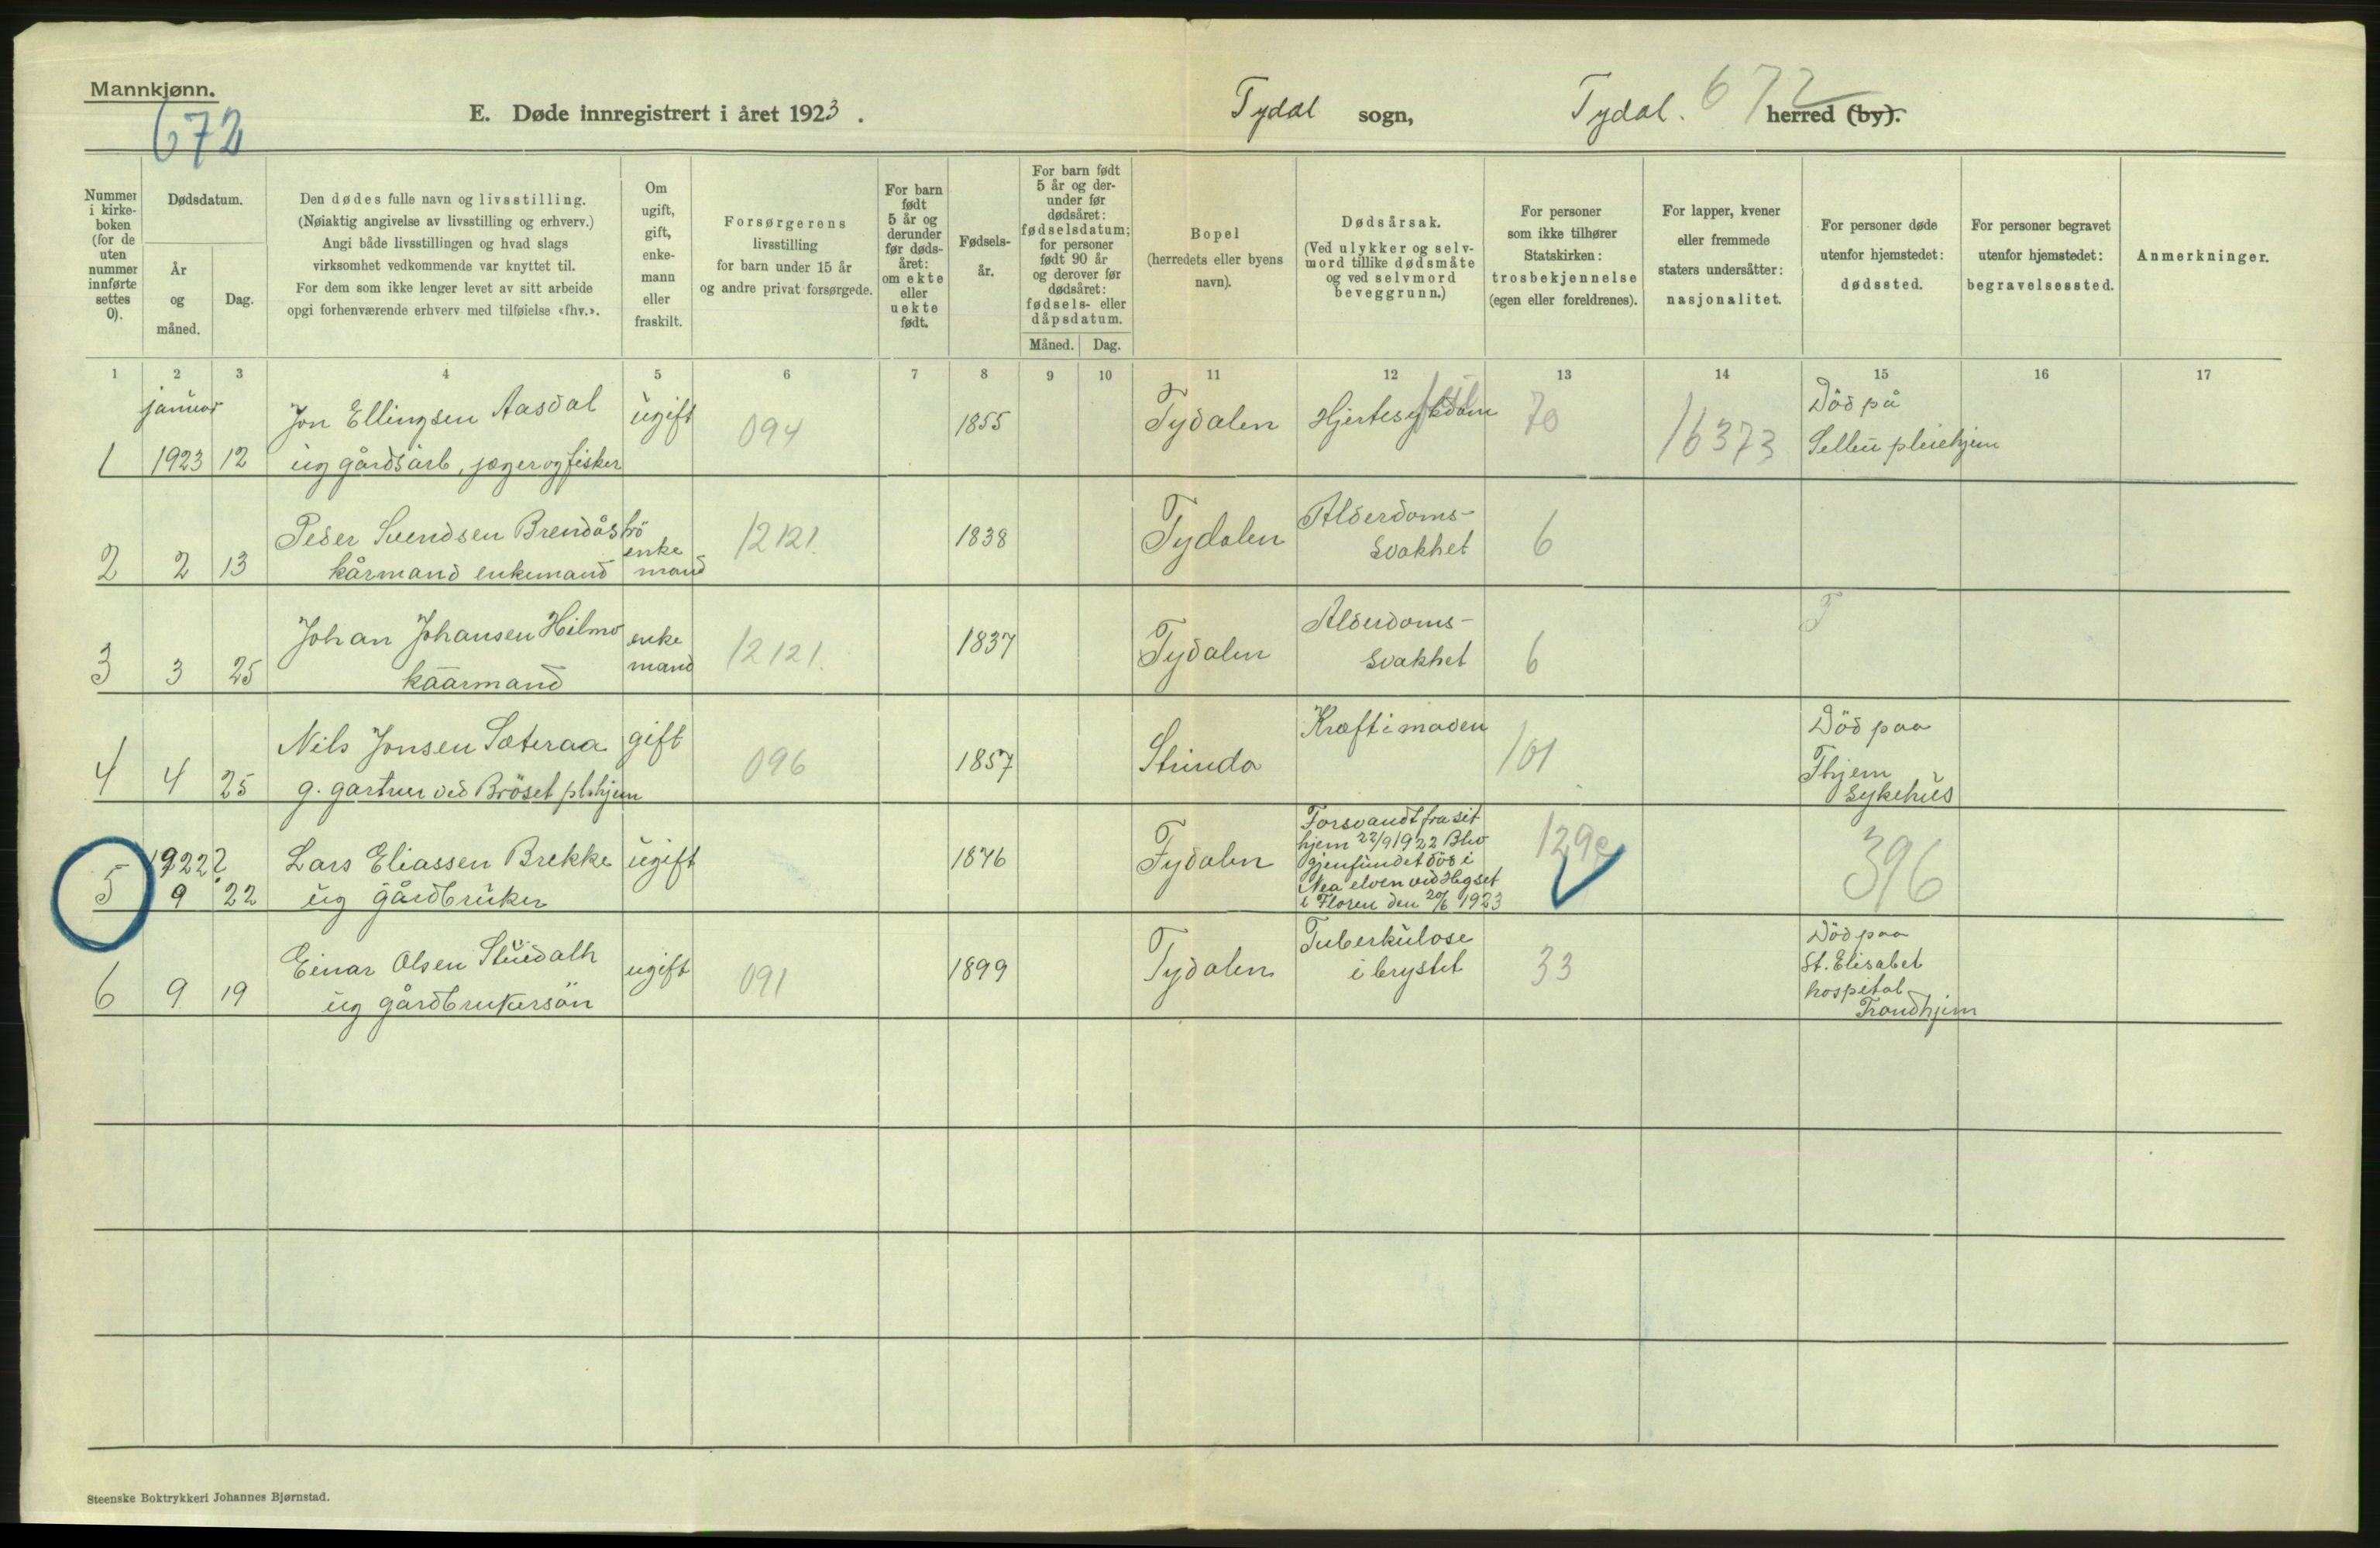 Mannkjønn.
672
E. Døde innregistrert i året 1923.
Tydal sogn,
Tydal. 672 herred (by).
Nummer i kirke-boken (for de uten nummer innførte settes 0).
Dødsdatum.
År og måned.
Dag.
Den dødes fulle navn og livsstilling.
(Nøiaktig angivelse av livsstilling og erhverv.)
Angi både livsstillingen og hvad slags
virksomhet vedkommende var knyttet til.
For dem som ikke lenger levet av sitt arbeide
opgi forhenværende erhverv med tilføielse «fhv.».
Om ugift, gift, enke-mann eller fraskilt.
Forsørgerens
livsstilling
for barn under 15 år
og andre privat forsørgede.
For barn født 5 år og derunder før døds-året: om ekte eller uekte født.
Fødsels-år.
For barn født 5 år og der-under før dødsåret: fødselsdatum; for personer født 90 år og derover før dødsåret: fødsels- eller dåpsdatum.
Måned. Dag.
Bopel
(herredets eller byens
navn).
Dødsårsak.
(Ved ulykker og selv-
mord tillike dødsmåte
og ved selvmord
beveggrunn.)
For personer
som ikke tilhører
Statskirken:
trosbekjennelse
(egen eller foreldrenes).
For lapper, kvener
eller fremmede
staters undersåtter:
nasjonalitet.
For personer døde
utenfor hjemstedet:
dødssted.
For personer begravet
utenfor hjemstedet:
begravelsessted.
Anmerkninger.
1 2 3 4 5 6 7 8 9 10 11 12 13 14 15 16 17
januar
1 1923 12
Jon Ellingsen Aasdal
ug gårdsarb, jæger og fisker
ugift
094
1855
Tydalen
Hjertesykdom
70
16373
Död på
Selbu pleiehjem
2 2 13
Peder Svendsen Brendåsbrö
kårmand enkemand
enke
mand
12121.
1838
Tydalen
Alderdoms-
svakhet
6
3 3 25
Johan Johansen Hilmo
kaarmand
enke
mand
12121.
1837
Tydalen
Alderdoms-
svakhet
6
T
4 4 25
Nils Jonsen Sæteraa
g. gartner ved Bröset plhjem
gift
096
1857
Strinda
Kræft i maven
101
Död paa
Thjem
sykehus
1922?
5 9 22
Lars Eliassen Brekke
ug gårdbruker
ugift
1876
Tydalen
Forsvandt fra sit
hjem 22/9 1922 Blev
gjenfundet död i
Nea elven ved Hegset
i Floren den 20/6 1923
129e
396
6 9 19
Einar Olsen Stuedalh
ug gårdbrukersön
ugift
091
1899
Tydalen
Tuberkulose
i brystet
33
Död paa
St. Elisabet
hospital
Trondhjem
Steenske Boktrykkeri Johannes Bjørnstad.